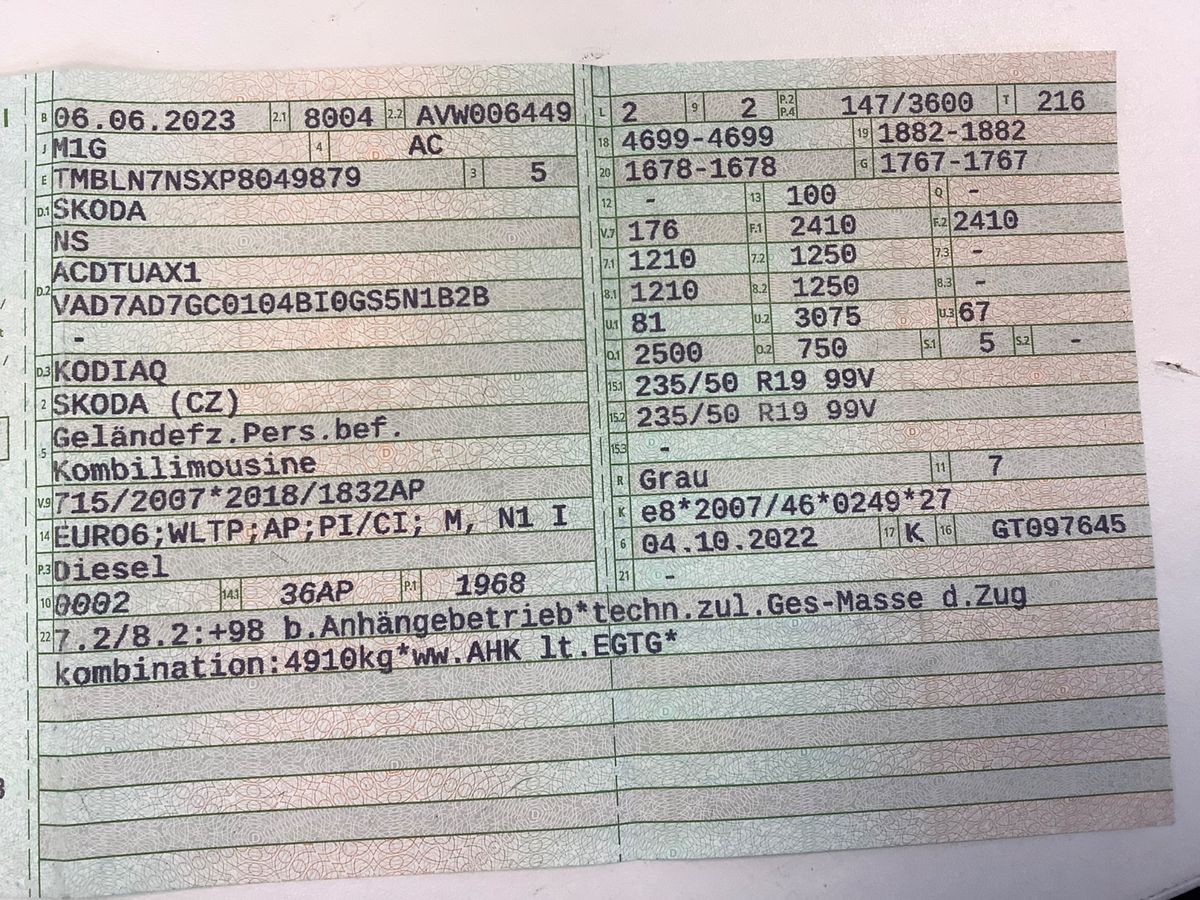 B 06.06.2023 2.1 8004 2.2 AVW006449
J M1G 4 AC
E TMBLN7NSXP8049879 3 5
D.1 SKODA
NS
D.2 ACDTUAX1
VAD7AD7GC0104BI0GS5N1B2B
-
D.3 KODIAQ
2 SKODA (CZ)
5 Geländefz.Pers.bef.
Kombilimousine
V.9 715/2007*2018/1832AP
14 EURO6;WLTP;AP;PI/CI; M, N1 I
P.3 Diesel
10 0002 14.1 36AP P.1 1968
L 2 9 2 P.2 P.4 147/3600 T 216
18 4699-4699 19 1882-1882
20 1678-1678 G 1767-1767
12 - 13 100 Q -
V.7 176 F.1 2410 F.2 2410
7.1 1210 7.2 1250 7.3 -
8.1 1210 8.2 1250 8.3 -
U.1 81 U.2 3075 U.3 67
O.1 2500 O.2 750 S.1 5 S.2 -
15.1 235/50 R19 99V
15.2 235/50 R19 99V
15.3 -
R Grau 11 7
K e8*2007/46*0249*27
6 04.10.2022 17 K 16 GT097645
21 -
22 7.2/8.2:+98 b.Anhängebetrieb*techn.zul.Ges-Masse d.Zug
kombination:4910kg*ww.AHK lt.EGTG*